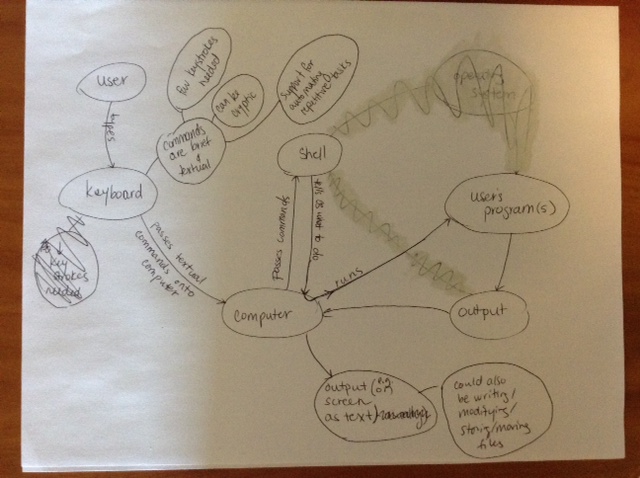 user
types
keyboard
few keystrokes
needed
can be
cryptic
commands
are brief
&
textual
support for
automating
repetitive tasks
operating
system
shell
passes commands
tells OS what to do
passes textual
commands onto
computer
key
strokes
needed
computer
runs
user's
program(s)
output
output (e.g.
on
screen
as text)
could also
be writing/
modifying/
storing/moving
files